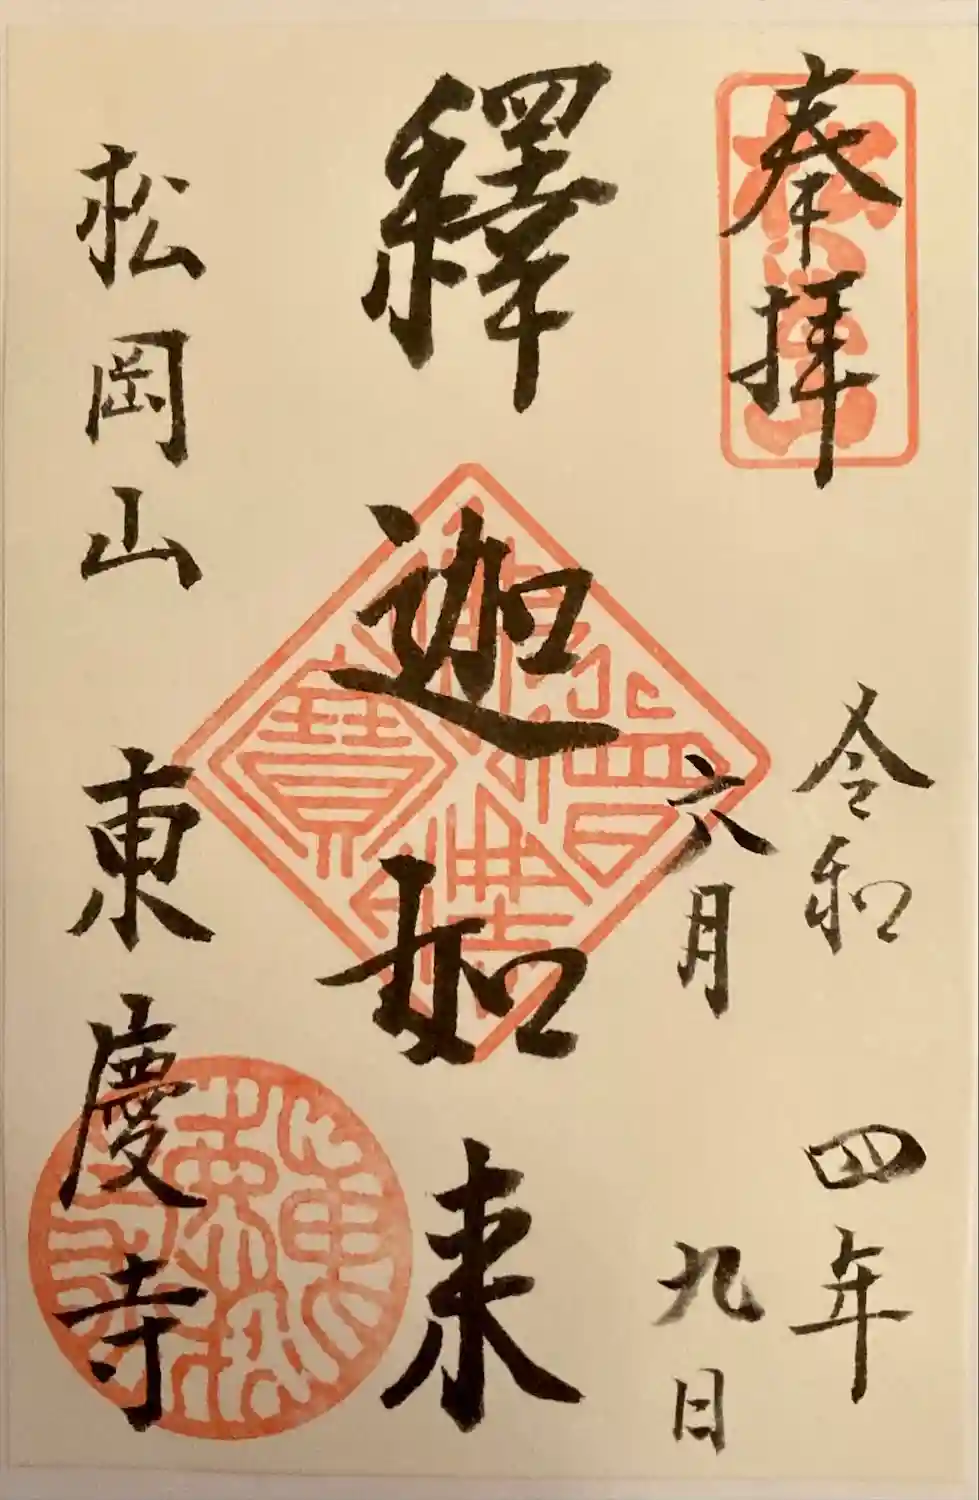 奉拝
令和四年
六月九日
釋迦如来
松岡山東慶寺
佛法僧寶